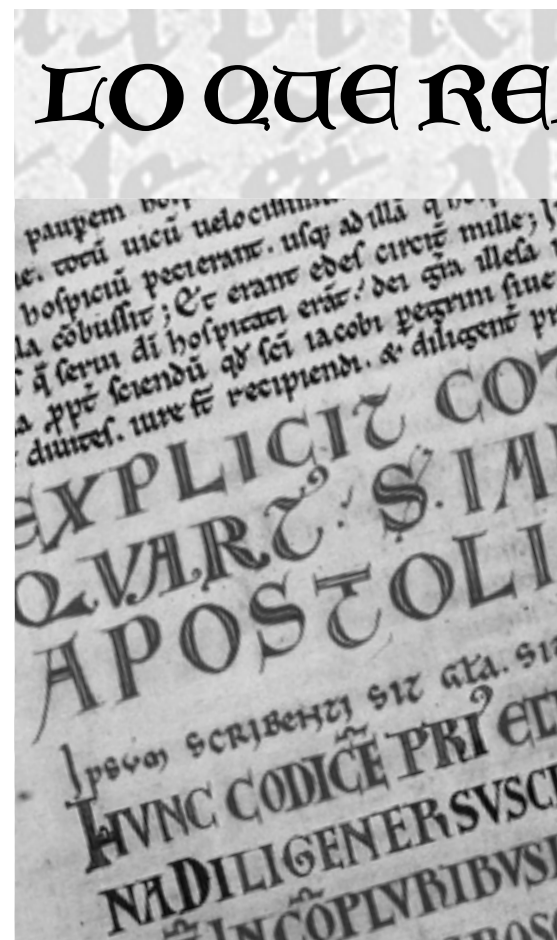 LO QUE RE
paupem
totū uicū uelocissima
hospiciū pecierant. usq; ad illā
cōbussit; Et erant edes circit mille;
q̄ serui di hospitati erāt. dei gr̄a illesa
ppt sciendū qđ sci iacobi pegrini siue
diuites. iure st recipiendi. & diligent
EXPLICIT COT
QVART. S. IA
APOSTOLI
Ipsum SCRIBENTI SIT GL̄A. SI
HVNC CODICĒ PRI ED
NA DILIGENER SVSC
IN COPLVRIBVS